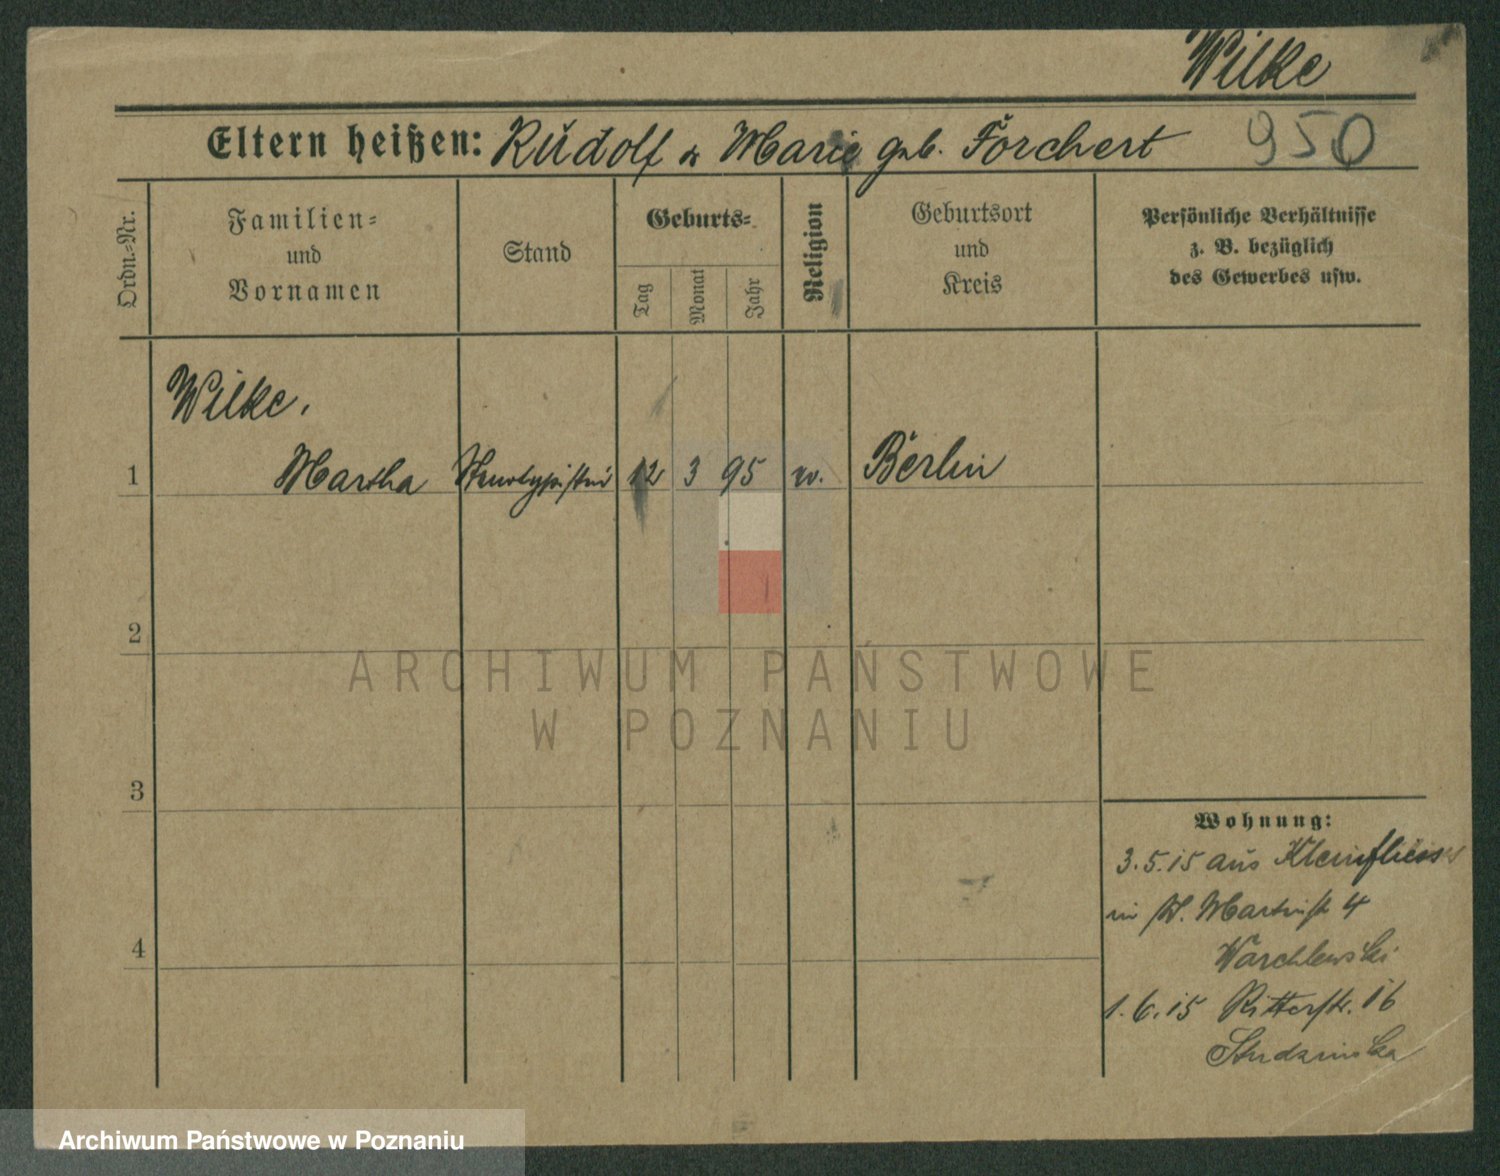 Wilke
Eltern heißen: Rudolf & Marie geb. Forchert
950
Ordn.=Nr.
Familien=
und
Vornamen
Stand
Geburts=
Tag
Monat
Jahr
Religion
Geburtsort
und
Kreis
Persönliche Verhältnisse
z. B. bezüglich
des Gewerbes usw.
Wilke,
1 Martha Stenotypistin 12 3 95 Berlin
2
3
4
Wohnung:
3.5.15 aus Kleinfliess
in St. Martinst 4
Warchlewski
1.6.15 Ritterstr. 16
Studzinska
ARCHIWUM PAŃSTWOWE
W POZNANIU
Archiwum Państwowe w Poznaniu